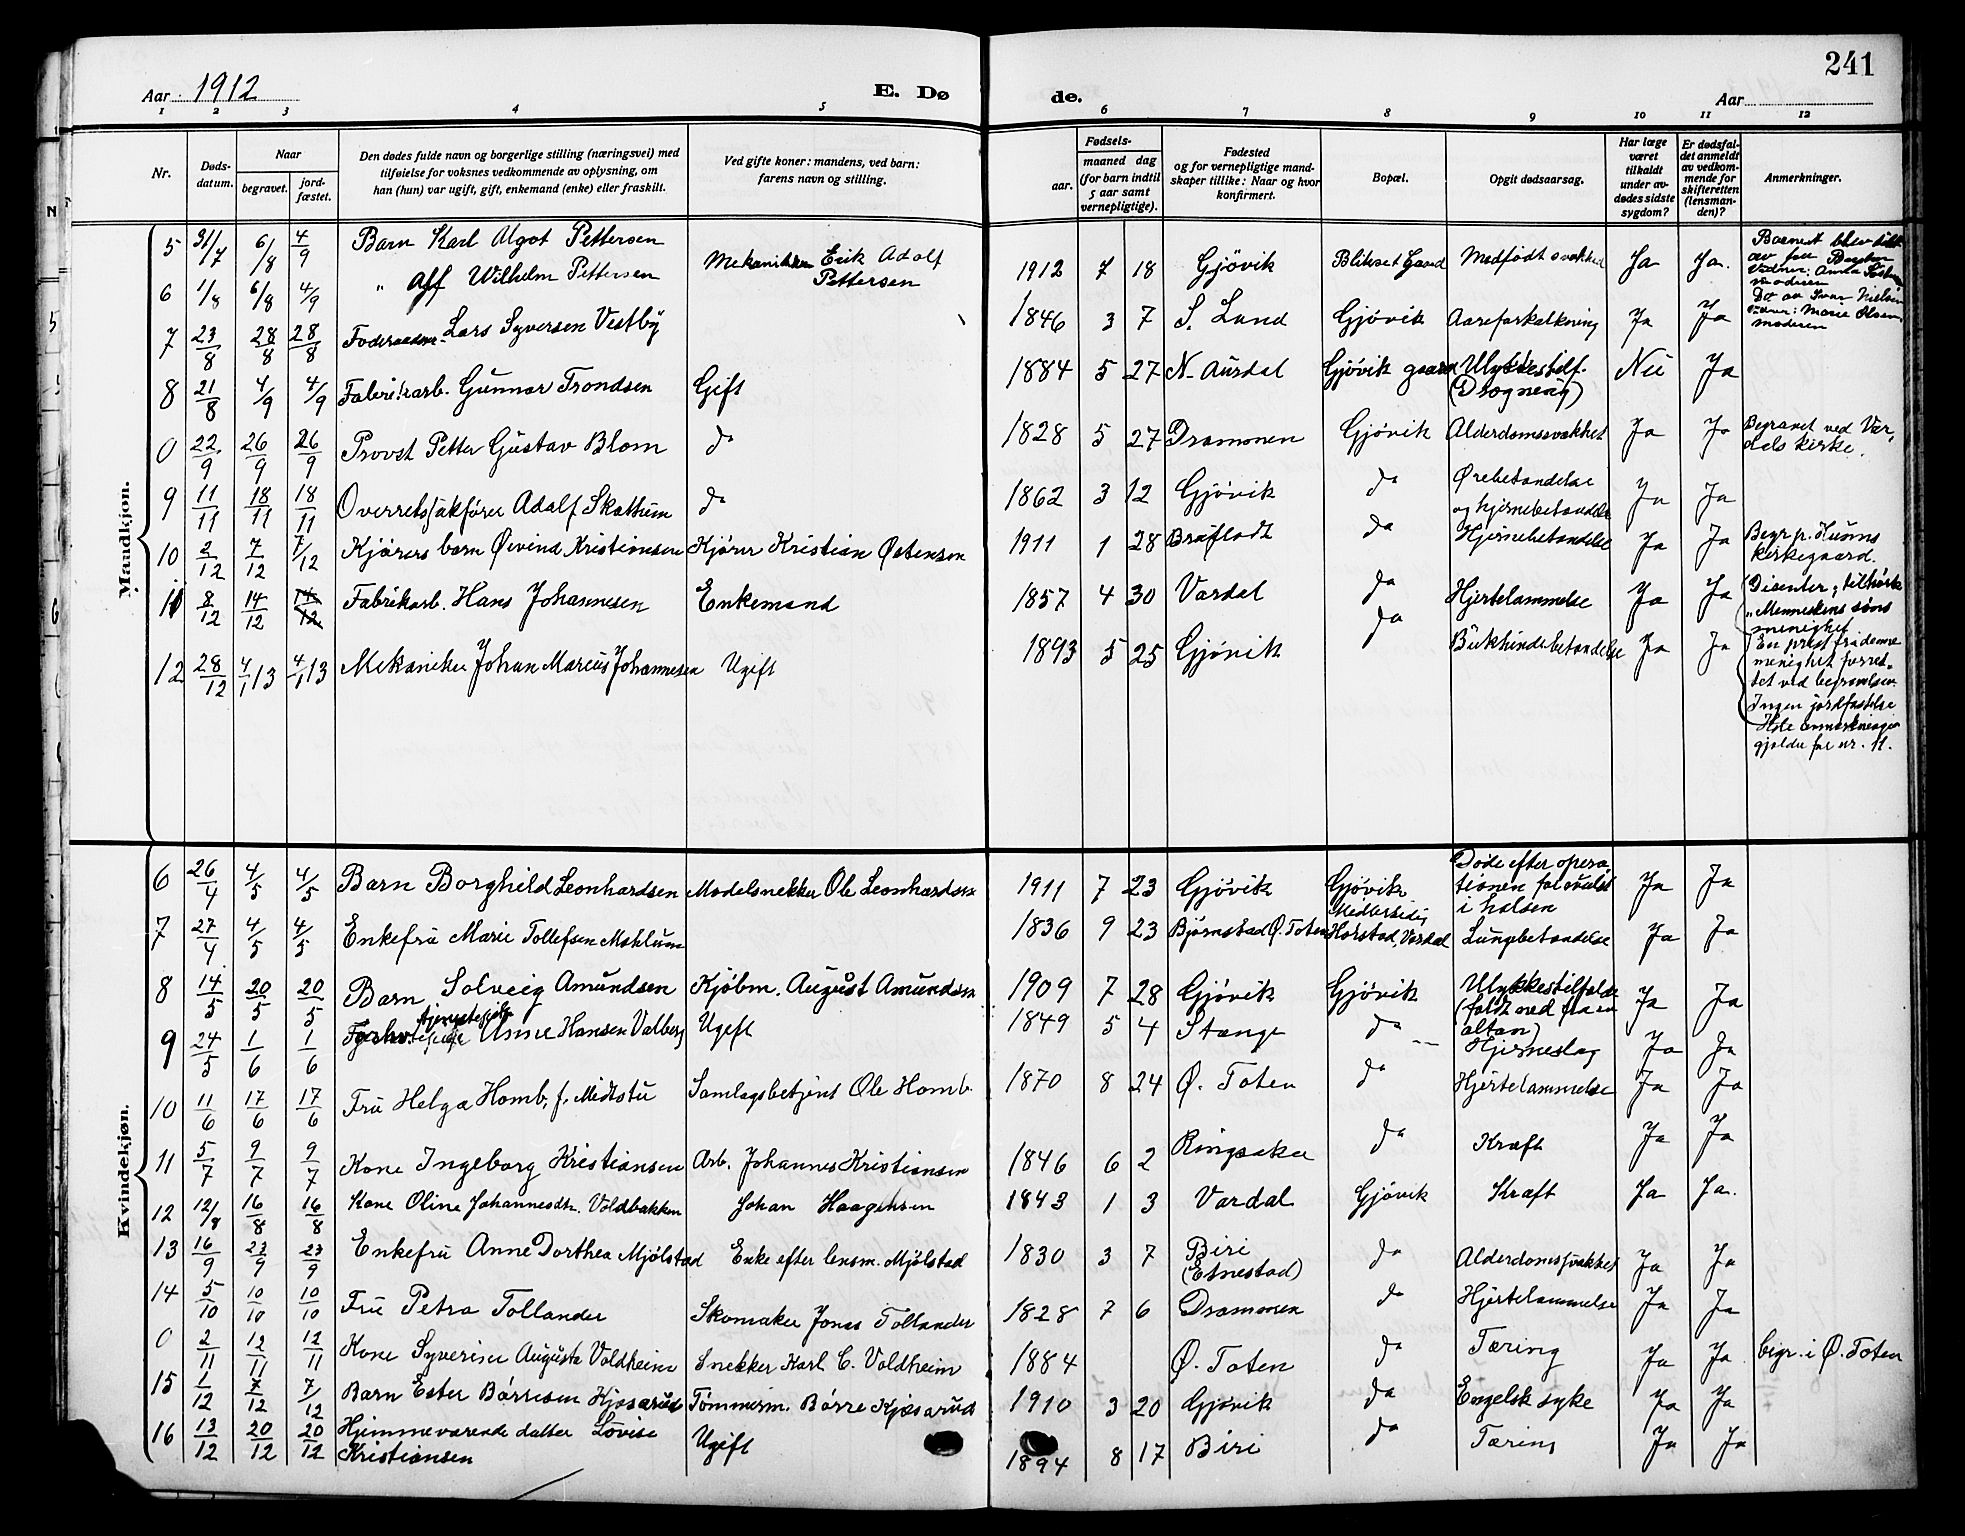 241
Aar 1912 E. Dø de. Aar
1 2 3 4 5 6 7 8 9 10 11 12
Nr.
Døds-
datum.
Naar
begravet.
jord-
fæstet.
Den dødes fulde navn og borgerlige stilling (næringsvei) med
tilføielse for voksnes vedkommende av oplysning, om
han (hun) var ugift, gift, enkemand (enke) eller fraskilt.
Ved gifte koner: mandens, ved barn:
farens navn og stilling.
Fødsels-
aar.
maaned dag
(for barn indtil
5 aar samt
vernepligtige).
Fødested
og for vernepligtige mand-
skaper tillike: Naar og hvor
konfirmert.
Bopæl.
Opgit dødsaarsag.
Har læge
været
tilkaldt
under av-
dødes sidste
sygdom?
Er dødsfal-
det anmeldt
av vedkom-
mende for
skifteretten
(lensman-
den)?
Anmerkninger.
Mandkjøn.
5 31/7 6/8 4/9 Barn Karl Algot Pettersen Mekaniker Erik Adolf Pettersen 1912 7 18 Gjøvik Blikset Gaard Medfødt svakhed Ja Ja. Barnet blev døbt
6 1/8 6/8 4/9 " Alf Wilhelm Pettersen
moderen
7 23/8 28/8 28/8 Føderaadsm. Lars Syversen Vestby 1846 3 7 S. Land Gjøvik Aareforkalkning Ja Ja
8 21/8 4/9 4/9 Fabrikarb. Gunnar Trondsen Gift 1884 5 27 N. Aurdal Gjøvik gaard Ulykkestilf. (Drogning) Nei Ja
0 22/9 26/9 26/9 Provst Petter Gustav Blom do 1828 5 27 Drammen Gjøvik Alderdomssvakhet Ja Ja Begravet ved Var-
dals kirke.
9 11/11 18/11 18/11 Overretssakfører Adolf Skattum do 1862 3 12 Gjøvik do Ørebetændelse
og hjernebetændelse Ja Ja
10 2/12 7/12 7/12 Kjørers barn Øivind Kristiansen Kjører Kristian Østensen 1911 1 28 Braflødt do Hjernebetændelse Ja Ja Begr. p. Hunns
kirkegaard.
11 8/12 14/12 14/12 Fabrikarb. Hans Johannesen Enkemand 1857 4 30 Vardal do Hjertelammelse Ja Ja Disenter, tilhørte
"Menneskens søns
menighet
12 28/12 4/1 13 4/1 13 Mekaniker Johan Marius Johannesen Ugift 1893 5 25 Gjøvik do Bukhindebetændelse Ja Ja En prest fra denne
menighet forret-
tet ved begravelsen.
Ingen jordfæstelse
Hele anmerkningen
gjælder for nr. 11.
Kvindekjøn.
6 26/4 4/5 4/5 Barn Borghild Leonhardsen Modelsnekker Ole Leonhardsen 1911 7 23 Gjøvik Gjøvik Døde efter opera
tionen for svulst
i halsen Ja Ja
7 27/4 4/5 4/5 Enkefru Marie Tollefsen Mæhlum 1836 9 23 Bjørnstad Ø. Toten Midlertidig
Horstad, Vardal Lungebetændelse Ja Ja
8 14/5 20/5 20/5 Barn Solveig Amundsen Kjøbm. August Amundsen 1909 7 28 Gjøvik Gjøvik Ulykkestilfælde
(faldt ned fra en
altan) Ja Ja
9 24/5 1/6 1/6 tjenestepike Anne Hansen Valberg Ugift 1849 5 4 Stange do Hjerneslag Ja Ja
10 11/6 17/6 17/6 Fru Helga Homb, f. Midtstu Samlagsbetjent Ole Homb. 1870 8 24 Ø. Toten do Hjertelammelse Ja Ja
11 5/7 9/7 9/7 Kone Ingeborg Kristiansen Arb. Johannes Kristiansen 1846 6 2 Ringsaker do Kræft Ja Ja
12 12/8 16/8 16/8 Kone Oline Johannesdtr. Voldbakken Johan Haagensen 1843 1 3 Vardal Gjøvik Kræft Ja Ja.
13 16/9 23/9 23/9 Enkefru Anne Dorthea Mjølstad Enke efter lensm. Mjølstad 1830 3 7 Biri
(Etnestad) do Alderdomssvakhet Ja Ja
14 5/10 10/10 10/10 Fru Petra Tollander Skomaker Jonas Tollander 1828 7 6 Drammen do Hjertelammelse Ja Ja
0 2/11 12/11 12/11 Kone Syverine Augusta Voldheim Snekker Karl C. Voldheim 1884 Ø. Toten do Tæring Ja Ja begr. i Ø. Toten
15 1/12 7/12 7/12 Barn Ester Børresen Kjøsarud Tømmerm. Børre Kjøsarud 1910 3 20 Gjøvik do Engelsk syke Ja Ja
16 13/12 20/12 20/12 Hjemmeværende datter Lovise
Kristiansen Ugift 1894 8 17 Biri do Tæring Ja Ja